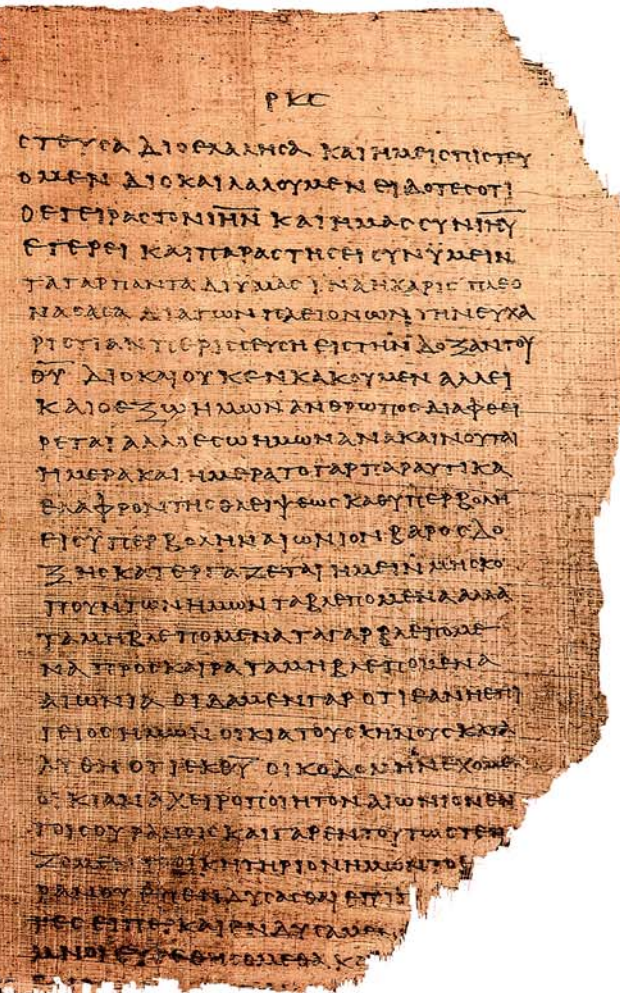 ΡΚϹ
ϹΤΕΥϹΑ ΔΙΟΕΛΑΛΗϹΑ ΚΑΙΗΜΕΙϹΠΙϹΤΕΥ
ΟΜΕΝ ΔΙΟΚΑΙΛΑΛΟΥΜΕΝ ΕΙΔΟΤΕϹΟΤΙ
ΟΕΓΕΙΡΑϹΤΟΝΙ̅Η̅Ν̅ ΚΑΙΗΜΑϹϹΥΝΙ̅Η̅Υ̅
ΕΓΕΡΕΙ ΚΑΙΠΑΡΑϹΤΗϹΕΙϹΥΝΫΜΕΙΝ
ΤΑΓΑΡΠΑΝΤΑΔΙΥΜΑϹΙΝΑΗΧΑΡΙϹΠΛΕΟ
ΝΑϹΑϹΑ ΔΙΑΤΩΝΠΛΕΙΟΝΩΝΤΗΝΕΥΧΑ
ΡΙϹΤΙΑΝΠΕΡΙϹϹΕΥϹΗΕΙϹΤΗΝΔΟΞΑΝΤΟΥ
Θ̅Υ̅ ΔΙΟΚΑΙΟΥΚΕΝΚΑΚΟΥΜΕΝ ΑΛΛΕΙ
ΚΑΙΟΕΞΩΗΜΩΝΑΝΘΡΩΠΟϹΔΙΑΦΘΕΙ
ΡΕΤΑΙΑΛΛΟΕϹΩΗΜΩΝΑΝΑΚΑΙΝΟΥΤΑΙ
ΗΜΕΡΑΚΑΙΗΜΕΡΑΤΟΓΑΡΠΑΡΑΥΤΙΚΑ
ΕΛΑΦΡΟΝΤΗϹΘΛΕΙΨΕΩϹΚΑΘΥΠΕΡΒΟΛΗ
ΕΙϹΫΠΕΡΒΟΛΗΝΑΙΩΝΙΟΝΒΑΡΟϹΔΟ
ΞΗϹΚΑΤΕΡΓΑΖΕΤΑΙΗΜΕΙΝΜΗϹΚΟ
ΠΟΥΝΤΩΝΗΜΩΝΤΑΒΛΕΠΟΜΕΝΑΑΛΛΑ
ΤΑΜΗΒΛΕΠΟΜΕΝΑΤΑΓΑΡΒΛΕΠΟΜΕ
ΝΑΠΡΟϹΚΑΙΡΑΤΑΜΗΒΛΕΠΟΜΕΝΑ
ΑΙΩΝΙΑ ΟΙΔΑΜΕΝΓΑΡΟΤΙΕΑΝΗΕΠΙ
ΓΕΙΟϹΗΜΩΝΟΙΚΙΑΤΟΥϹΚΗΝΟΥϹΚΑΤΑ
ΛΥΘΗΟΤΙΕΚΘ̅Υ̅ ΟΙΚΟΔΟΜΗΝΕΧΟΜΕ
ΟΙΚΙΑΝΑΧΕΙΡΟΠΟΙΗΤΟΝΑΙΩΝΙΟΝΕΝ
ΤΟΙϹΟΥΡΑΝΟΙϹΚΑΙΓΑΡΕΝΤΟΥΤΩϹΤΕΝ
ΖΟΜΕΝΤΟΟΙΚΗΤΗΡΙΟΝΗΜΩΝΤΟΕ
ΡΑΝΟΥΕΠΕΝΔΥϹΑϹΘΑΙΕΠΙΠ
ΤΕϹΕΙΠΕΡΚΑΙΕΝΔΥϹΑΜΕΝ
ΜΝΟΙΕΥΡΕΘΗϹΟΜΕΘΑΚ